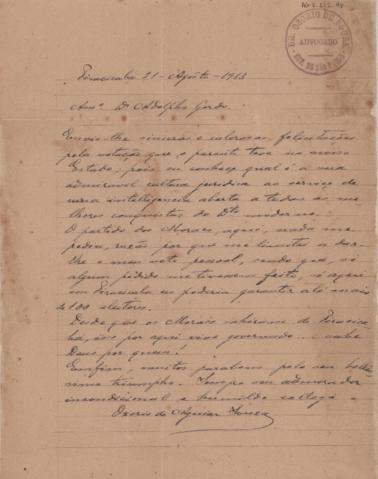 DR. OZORIO DE SOUZA
ADVOGADO
Piracicaba 21 - Agosto - 1913
Amº Dr Adolpho Gordo.
Envio-lhe sinceras e calorosas felicitações
pela votação que o parente teve no nosso
Estado, pois eu conheço qual é a sua
admiravel cultura juridica ao serviço de
uma intelligencia aberta a todas as me
lhores conquistas do Dto moderno.
O partido dos Moraes, aqui, nada me
pediu, razão por que me limitei a dar-
lhe o meu voto pessoal, sendo que, si
algum pedido me tivessem feito, só aqui
em Piracicaba eu poderia garantir até mais
de 100 eleitores.
Desde que os Moraes sahiram de Piracica
ba, isso por aqui vive governado... sabe
Deus por quem!
Emfim, muitos parabens pelo seu bellis
simo triumpho. Sempre seu admirador
incondicional e humilde collega
Ozorio de Aguiar Souza